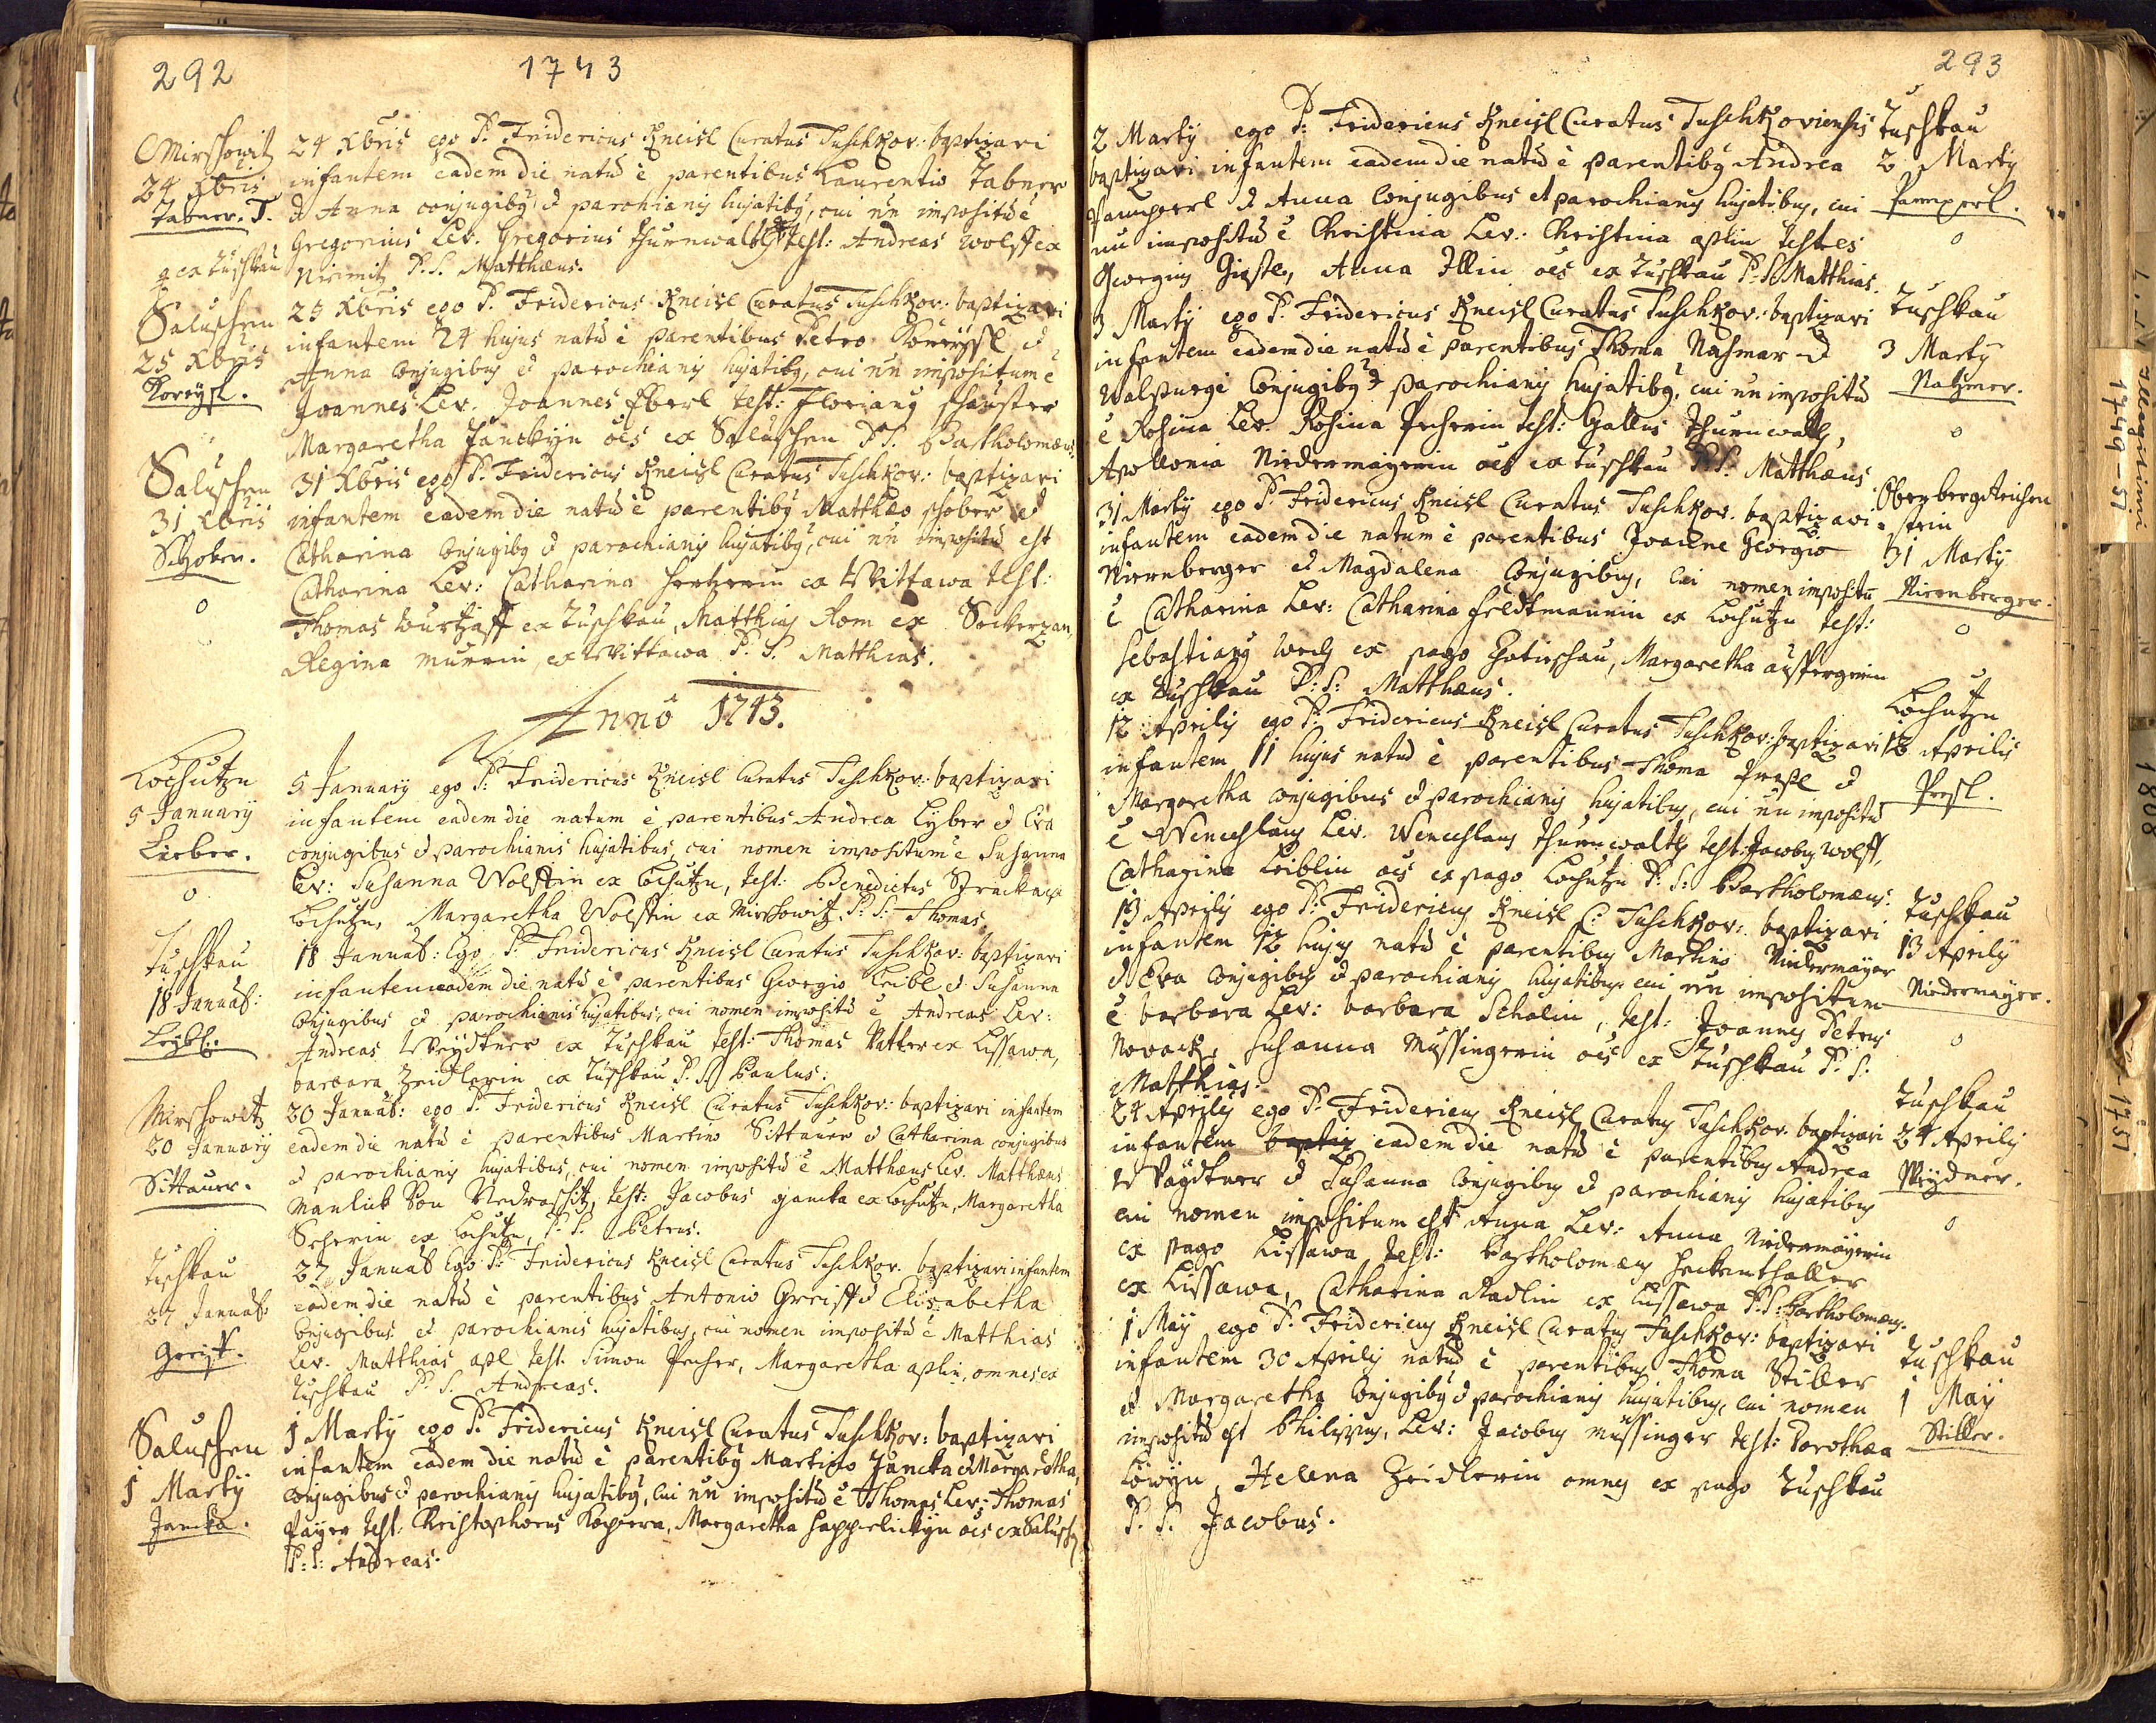 292
1743
Mirschowitz
24 Xbris
Tabner. T.
24 Xbris ego P. Fridericus Kneisl Curatus Tuschkov: baptizavi
infantem eadem die natũ è parentibus Laurentio Tabner
& Anna conjugibȝ & parochianis hujatibȝ, cui ñn impositũ è
Gregorius Lev. Gregorius Thurnwaldt Test: Andreas Wolff ex
ex Tuschkau
P. S. Matthæus.
Saluschen
25 Xbris
25 Xbris ego P. Fridericus Kneisl Curatus Tuschkov: baptizavi
infantem 24 hujus natũ è parentibus Petro &
Anna Conjugibȝ & parochianis hujatibȝ, cui ñn impositum è
Joannes Lev. Joannes Eberl Test: Florianȝ Schuster
Margaretha Janckyn oẽs ex Saluschen P. S. Bartholomæus.
Saluschen
31 Xbris
Schober.
31 Xbris ego P. Fridericus Kneisl Curatus Tuschkov: baptizavi
infantem eadem die natũ è parentibȝ Matthæo Schober &
Catharina Conjugibȝ & parochianis hujatibȝ, cui ñn impositũ est
Catharina Lev: Catharina ex Wittawa Test:
Thomas ex Tuschkau, Matthias Rom ex
Regina Murrin, ex Wittawa P. S. Matthias.
Anno 1743.
Lochutzn
5 January
Lieber.
0
5 January ego P: Fridericus Kneisl Curatus Tuschkov: baptizavi
infantem eadem die natum è parentibus Andrea Lyber & Eva
conjugibus & parochianis hujatibus, cui nomen impositum è Susanna
Lev: Susanna Wolffin ex Lochutzn, Test: Benedictus ex
Lochutzn, Margaretha Wolffin ex Mirschowitz. P: S: Thomas.
Tuschkau
18 Januar:
Leybl.
18 Januar: Ego P. Fridericus Kneisl Curatus Tuschkov: baptizavi
infantem eadem die natũ è parentibus Georgio Leibl & Susanna
Conjugibus & parochianis hujatibus, cui nomen impositũ è Andreas Lev:
Andreas Weydtner ex Tuschkau Test: Thomas Vatter ex Lissawa,
barbara Zeidlerin ex Tuschkau P. S. Paulus.
Mirschowitz
20 January
Sittauer.
20 Januar: ego P. Fridericus Kneisl Curatus Tuschkov: baptizavi infantem
eadem die natũ è parentibus Martino Sittauer & Catharina conjugibus
& parochianis hujatibus, cui nomen impositũ è Matthæus Lev. Matthæus
Manlick Von Test: Jacobus Jancka ex Lochutzn, Margaretha
ex Lochutzn, P. S. Petrus.
Tuschkau
27 Januar:
Greiff.
27 Januar Ego P: Fridericus Kneisl Curatus Tuschkov. baptizavi infantem
eadem die natũ è parentibus Antonio Greiff & Elisabetha
Conjugibus & parochianis hujatibus, cui nomen impositũ è Matthias
Lev. Matthias apl Test. Simon Pecher, Margaretha aplin, omnes ex
Tuschkau P. S. Andreas.
Saluschen
1 Marty
Jancka.
1 Marty ego P. Fridericus Kneisl Curatus Tuschkov: baptizavi
infantem eadem die natũ è parentibȝ Martino Jancka & Margaretha,
conjugibus & parochianis hujatibȝ, cui ñn impositũ è Thomas Lev: Thomas
Payer Test: Christophorus Margaretha oẽs ex Salusch
P: S: Andreas.
293
2 Marty ego P: Fridericus Kneisl Curatus Tuschkoviensis
baptizavi infantem eadem die natũ è parentibȝ Andrea
Pamperl & Anna Conjugibus et parochianis hujatibus, cui
ñn impositũ è Christina Lev: Christina aplin Testes
Georgius Anna Illin oẽs ex Tuschkau P: S: Matthias.
Tuschkau
2 Marty
Pamperl.
0
3 Marty ego P. Fridericus Kneisl Curatus Tuschkov: baptizavi
infantem eadem die natũ è parentibus Thoma Nasmar &
Walpurge Conjugibȝ & parochianis hujatibȝ, cui ñn impositũ
è Rosina Lev. Rosina Pecherin Test: Gallus Thurnwaldt,
Apollonia Niedermayerin oẽs ex Tuschkau P: S: Matthæus
Tuschkau
3 Marty
Natzmer.
0
31 Marty ego P. Fridericus Kneisl Curatus Tuschkov: baptizavi
infantem eadem die natum è parentibus Joanne Georgio
Niernberger & Magdalena Conjugibus, Cui nomen impositũ
è Catharina Lev: Catharina Feldtmannin ex Lochutzn Test:
Sebastianȝ ex pago Gotieschau, Margaretha
ex Tuschkau P: S: Matthæus.
31 Marty
Niernberger.
0
12 Aprilis ego P: Fridericus Kneisl Curatus Tuschkov: baptizavi
infantem 11 hujus natũ è parentibus Thoma Presl &
Margaretha conjugibus & parochianis hujatibus, cui ñn impositũ
è Wenceslaus Lev. Wenceslaus Thurnwaldt Test: Jacobus Wolff,
Catharina Leiblin oẽs ex pago Lochutzn P: S: Bartholomæus.
Lochutzn
12 Aprilis
Presl.
13 Aprilis ego P: Fridericus Kneisl C: Tuschkov: baptizavi
infantem 12 hujus natũ è parentibus Martino Niedermayer
& Eva Conjugibus & parochianis hujatibus, cui ñn impositum
è barbara Lev: barbara Scholin, Test: Joannes Petrus
Novack, Susanna Mussingerin oẽs ex Tuschkau P. S.
Matthias.
Tuschkau
13 Aprily
Niedermayer.
0
24 Aprilis ego P. Fridericus Kneisl Curatus Tuschkov. baptizavi
infantem baptiz eadem die natũ è parentibus Andrea
Waydtner & Susanna Conjugibus & parochianis hujatibus
cui nomen impositum est Anna Lev: Anna Niedermayerin
ex pago Lissawa, Test: Bartholomæus
ex Lissawa, Catharina Radlin ex Lissawa P: S: Bartholomæus.
Tuschkau
24 Aprily
Weydner.
0
1 May ego P. Fridericus Kneisl Curatus Tuschkov: baptizavi
infantem 30 Aprilis natũ è parentibus Thoma Stiller
& Margaretha Conjugibȝ & parochianis hujatibus, cui nomen
impositũ est Philippus, Lev: Jacobus Mussinger Test: Dorothea
Helena Zeidlerin omnes ex pago Tuschkau
P. S. Jacobus.
Tuschkau
1 May
Stiller.
1749-51